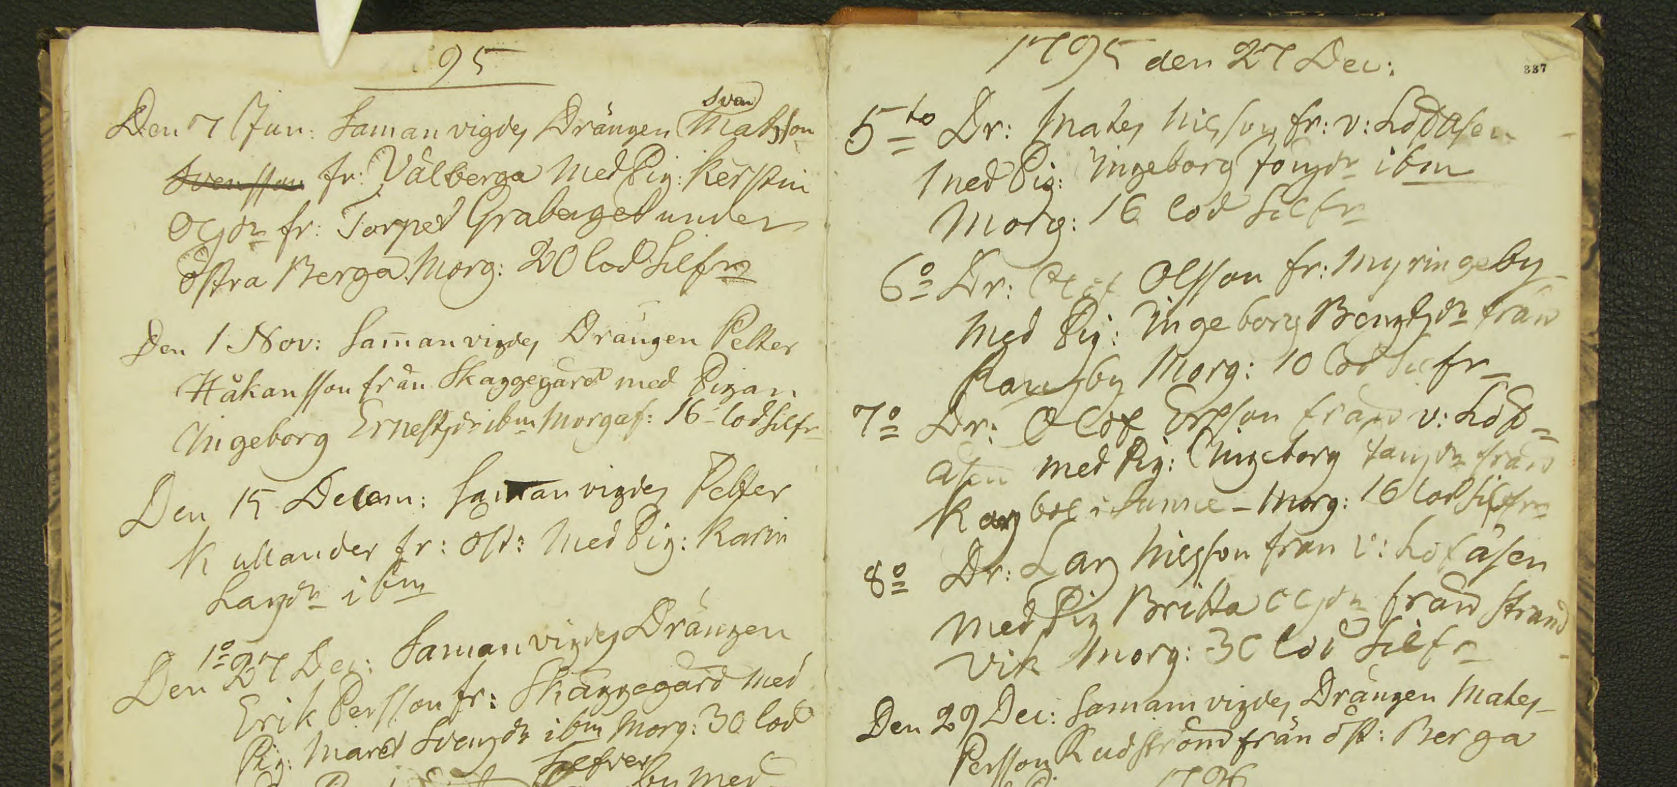 95
Den 7 Jun: Samanvigdes Drängen Sven Matsson
Svensson fr: Välberga med Pig: Kerstin
Ols dr fr: Torpet Graberget under
Östra Berga Morg: 20 lod Silfr
Den 1 Nov: Sam̄anvigdes Drängen Petter
Håkansson från Skaggegärd med Pigan
Ingeborg Ernestsdr ibm Morgaf: 16 lod Silfr
Den 15 Decem: Samanvigdes Petter
Kullander fr: öst: med Pig: Karin
Larsdr ibm
1o
Den 27 Dec: Samanvigdes Drängen
Erik Persson fr: Skäggegärd med
Pig: Maret Svensdr ibm Morg: 30 lod
Silfver
by med
1795 den 27 Dec:
337
5to Dr: Mates Nilsson fr: v: Löfåsen
med Pig: Ingeborg Jonsdr ibm
Morg: 16 lod Silfr
6o Dr: Olof Olsson fr: Myringeby
med Pig: Ingeborg Bengtsdr från
Morg: 10 lod Silfr
7o Dr: Olof Erson från v: Löf=
åsen med Pig: Ingeborg Jansdr från
Karsbol i Sunne - Morg: 16 lod Silfr
8o Dr: Lars Nilsson från v: Löfåsen
med Pig Britta Olsdr från Strand
vik Morg: 30 lod Silfr
Den 29 Dec: Samamvigdes Drängen Mates
Persson Rudström från öst: Berga
1796